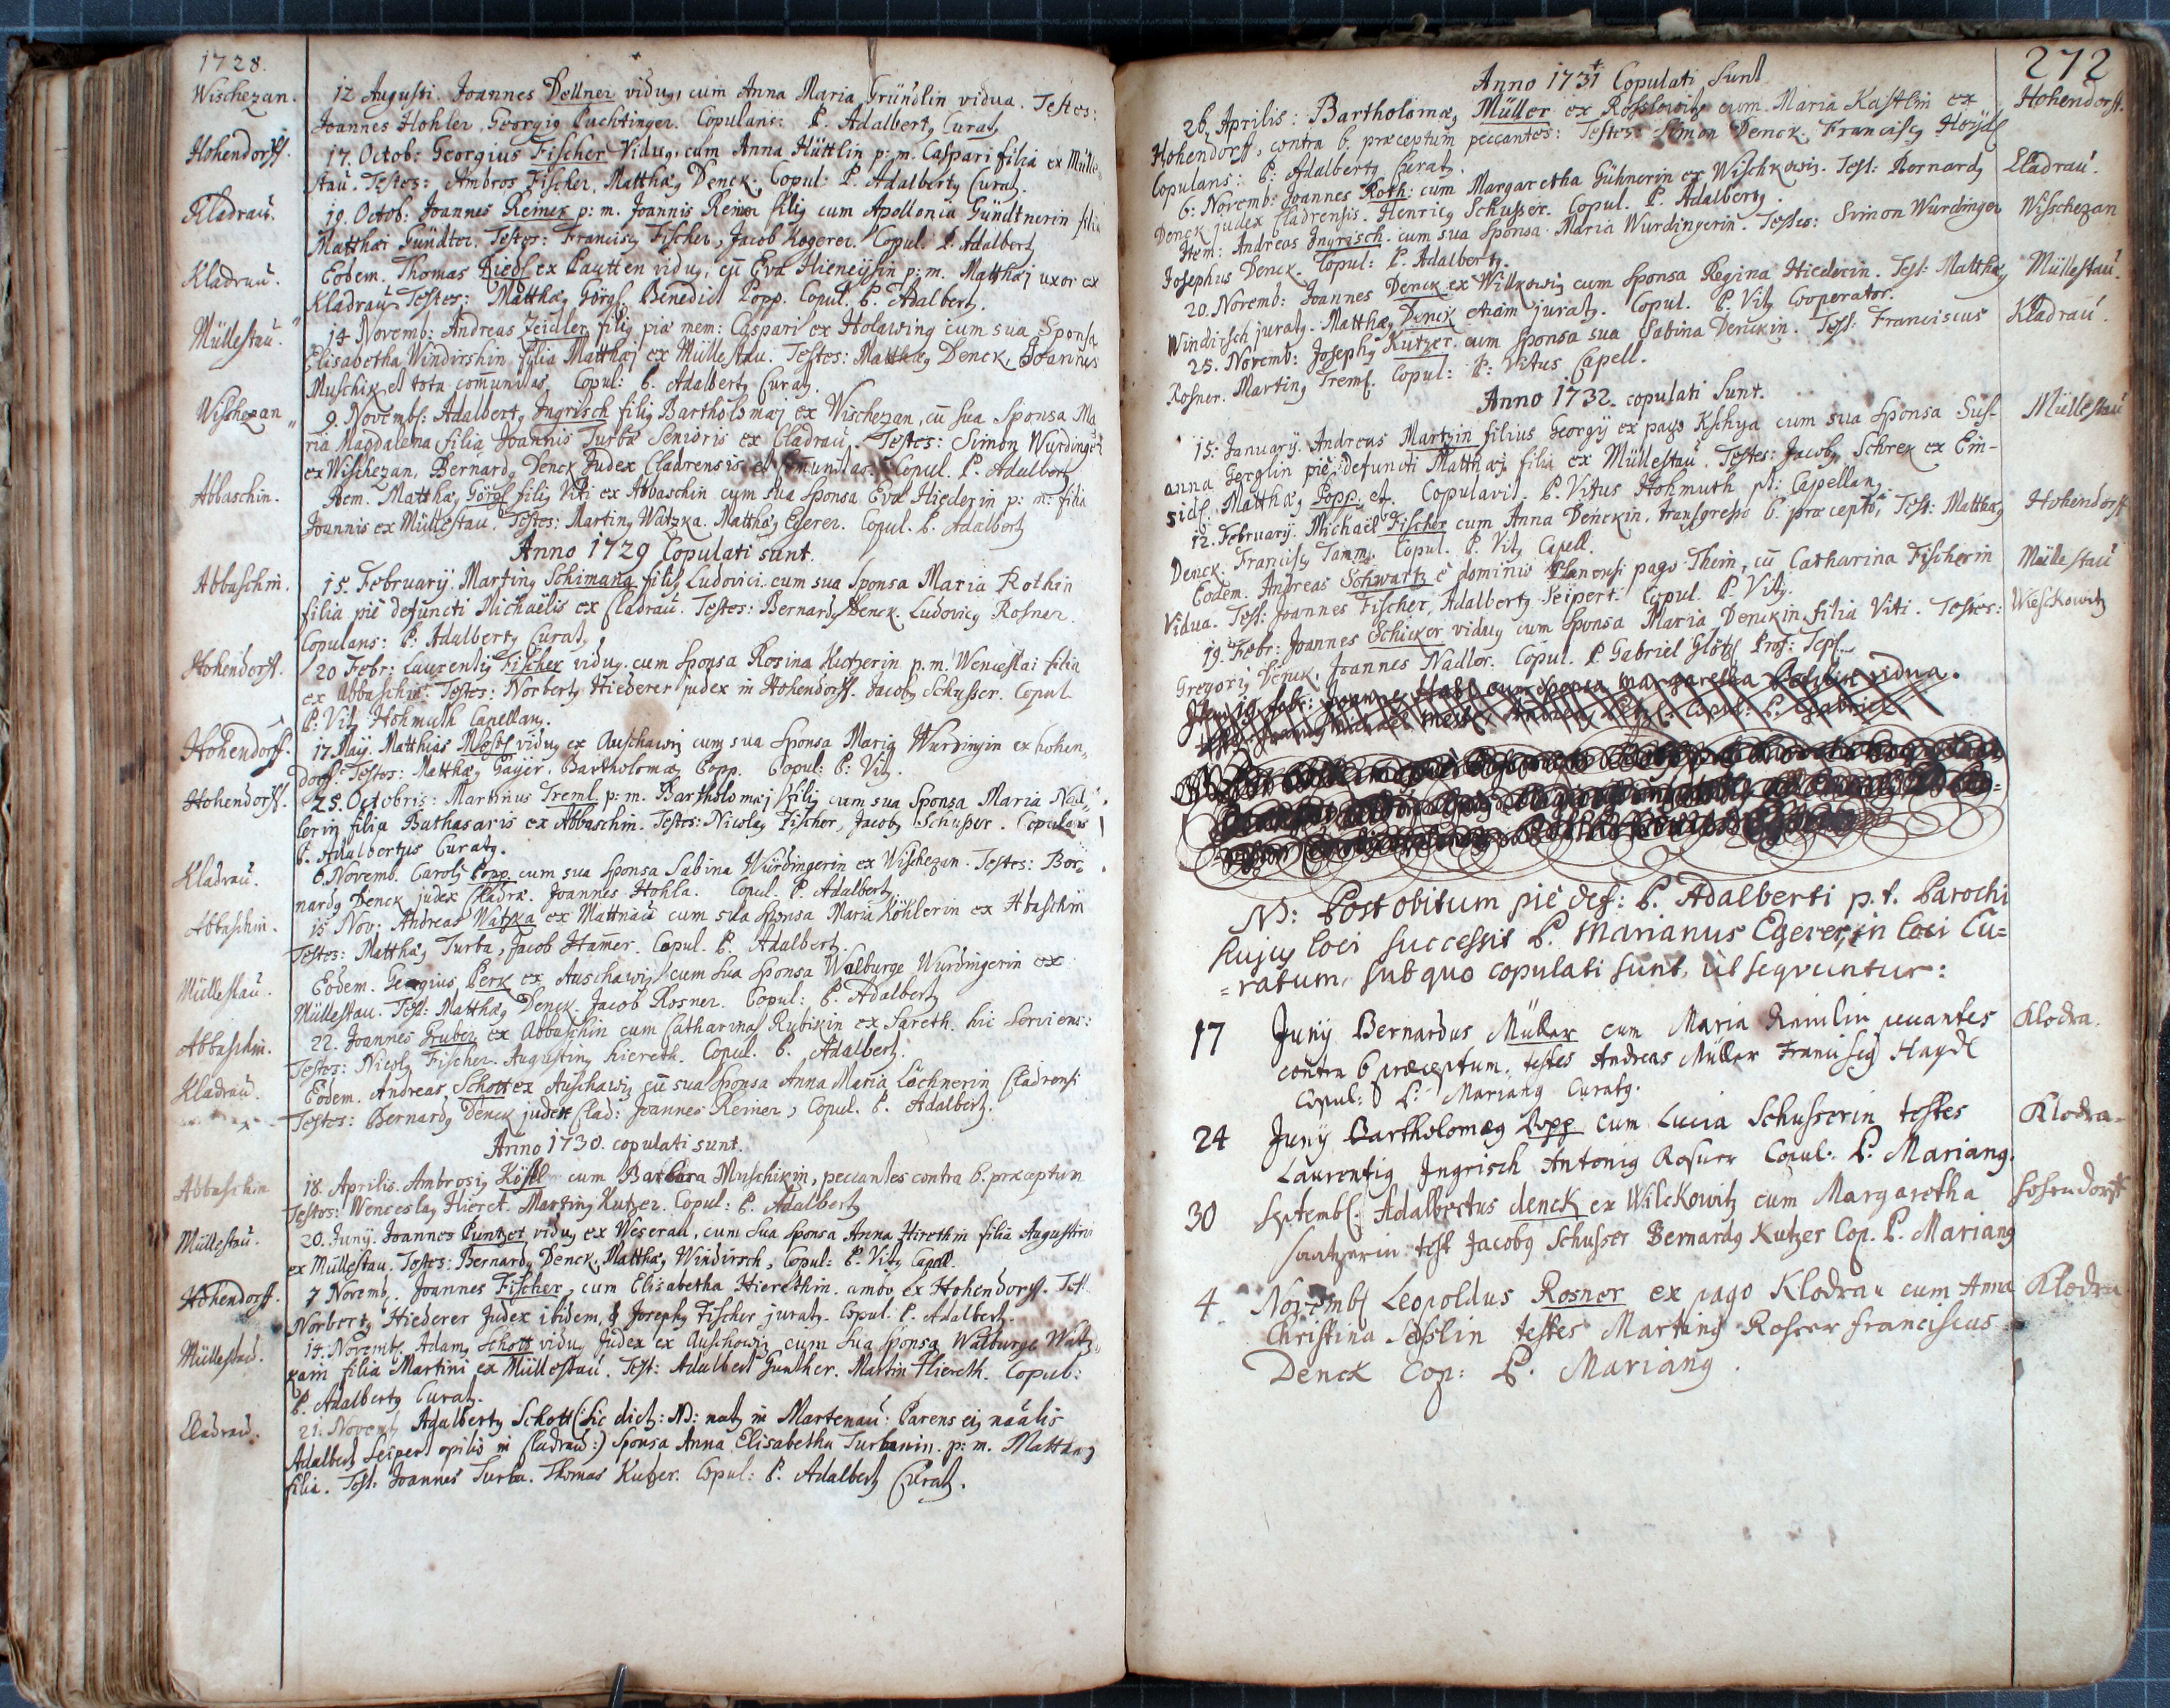 1728.
Wischezan. 12 Augusti. Joannes Dellner viduq, cum Anna Maria Gründlin vidua. Testes:
Joannes Hohler, Georgiq Puchtinger. Copulans: P. Adalbertq Curatq
Hohendorff. 17. Octob: Georgius Fischer Viduq, cum Anna Hüttlin p: m. Caspari filia ex Mülle
stau. Testes: Ambros Fischer, Matthæq Denck. Copul: P. Adalbertq Curatq.
Kladrau. 19. Octob: Joannes Reiner p: m. Joannis Reiner filiq cum Apollonia Gündtnerin filia
Matthæi Gündter. Testes: Franciscq Fischer, Jacob Kogerer. Copul. P. Adalbertq
Kladrau. Eodem. Thomas Riedl ex Pautten viduq, cū Eva Hieneÿsin p: m. Matthæj uxor ex
Kladrau Testes: Matthæq Görgl. Benedict Popp. Copul. P. Adalbertq.
Müllestau. 14 Novemb: Andreas Zeidler filiq piæ mem: Caspari ex Holawing cum sua Sponsa
Elisabetha Windirshin filia Matthæj ex Müllestau. Testes: Matthæq Denck, Joannes
Muschik et tota com̄unitas, Copul: P. Adalbertq Curatq.
Wischezan 9. Novembr: Adalbertq Ingrisch filiq Bartholomæj ex Wischezan, cū sua Sponsa Ma
ria Magdalena filia Joannis Turba Senioris ex Cladrau. Testes: Simon Wurdinger
ex Wischezan, Bernardq Denck Judex Cladrensis et Copul. P. Adalbertq
Abbaschin. Item. Matthæq Görgl filiq Viti ex Abbaschin cum sua Sponsa Eva Hiederin p: m: filia
Joannis ex Müllestau. Testes: Martinq Watzka. Matthæq Egerer. Copul. P. Adalbertq
Anno 1729 Copulati sunt.
Abbaschin. 15. Februarÿ. Martinq Schimana filiq Ludovici cum sua Sponsa Maria Rothin
filia piè defuncti Michaëlis ex Cladrau. Testes: Bernardq Denck. Ludovicq Rosner.
Copulans: P. Adalbertq Curatq
Hohendorff. 20 Febr: Laurentiq Fischer viduq. cum Sponsa Rosina Kutzerin p. m. Wenceslai filia
ex Abbaschin. Testes: Norbertq Hiederer judex in Hohendorff. Jacobq Schusser. Copul
P. Vitq Hohmuth Capellanq.
Hohendorff. 17. Maÿ. Matthias viduq ex Auschawiz cum sua Sponsa Maria Wurdingin ex hohen
dorff. Testes: Matthæq Gaÿer. Bartholomæq Popp. Copul: P: Vitq.
Hohendorff. 25. Octobris: Martinus Treml p: m. Bartholomæj filiq cum sua Sponsa Maria Nad
lerin filia Bathasaris ex Abbaschin. Testes: Nicolaq Fischer, Jacobq Schusser. Copulans
P. Adalbertus Curatq.
Kladrau. 6. Novemb. Carolq Popp cum sua Sponsa Sabina Würdingerin ex Wischezan. Testes: Ber
nardq Denck judex Cladræ. Joannes Hohla. Copul. P. Adalbertq.
Abbaschin. 15 Nov: Andreas Watzka ex Mattnau cum sua Sponsa Maria Köhlerin ex Abaschin
Testes: Matthæq Turba, Jacob Ham̄er. Copul. P. Adalbertq.
Müllestau. Eodem. Georgius Perk ex Auschawiz cum sua Sponsa Walburge Wurdingerin ex
Müllestau. Test: Matthæq Denck. Jacob Rosner. Copul: P. Adalbertq
Abbaschin. 22. Joannes Gruber ex Abbaschin cum Catharina Rubikin ex Sareth. hic Serviens:
Testes: Nicolq Fischer. Augustinq hiereth. Copul. P. Adalbertq.
Kladrau. Eodem. Andreas Schott ex Auschawiz cū sua Sponsa Anna Maria Löchnerin Cladrensi
Testes: Bernardq Denck judex Clad: Joannes Reiner, Copul. P. Adalbertq.
Anno 1730. copulati sunt.
Abbaschin 18. Aprilis. Ambrosiq Kösl cum Barbara Muschikin, peccantes contra 6. præceptum
Testes: Wenceslaq Hieret. Martinq Kutzer. Copul: P. Adalbertq
Müllestau. 20. Junÿ. Joannes Puntzet viduq ex Weserau, cum sua Sponsa Anna Hirethin filia Augustini
ex Müllestau. Testes: Bernardq Denck. Matthæq Windirsch, Copul: P. Vitq Capell.
Hohendorff. 7 Novemb. Joannes Fischer, cum Elisabetha Hierethin. ambo ex Hohendorff. Test
Norbertq Hiederer Judex ibidem, & Josephq Fischer juratq. Copul. P. Adalbertq.
Müllestau. 14. Novemb. Adamq Schott viduq Judex ex Auschowiz cum sua Sponsa Walburge Watz
kain filia Martini ex Müllestau. Test: Adalbert Gunther. Martin Hiereth. Copul:
P. Adalbertq Curatq.
Cladrau. 21. Novemb Adalbertq Schott (: sic dictq: NB: natq in Martenau: Parens eiq naālis
Adalbertq Seipert opilio in Cladrau:) Sponsa Anna Elisabetha Turbanin. p: m. Matthæq
filia. Test: Joannes Turba. Thomas Kutzer. Copul: P. Adalbertq Curatq.
272
Anno 1731 Copulati Sunt
26, Aprilis: Bartholomæq Müller ex Rosslowitz cum Maria Kastlin ex Hohendorff.
Hohendorff, contra 6. præceptum peccantes: Testes: Simon Denck. Franciscq Hoÿdl
Copulans: P: Adalbertq Curatq.
6: Novemb: Joannes Roth: cum Margaretha Gühnerin ex Wischkowiz. Test: Bernardq Cladrau.
Denck judex Cladrensis. Henricq Schusser. Copul. P. Adalbertq.
Item: Andreas Ingrisch. cum sua Sponsa Maria Wurdingerin. Testes: Simon Wurdinger Wischezan
Josephus Denck. Copul: P. Adalbertq.
20. Novemb: Joannes Denck ex Wilkowiz cum Sponsa Regina Hiederin. Test: Matthæq Müllestau.
Windirsch juratq. Matthæq Denck etiam juratq. Copul. P. Vitq Cooperator.
25. Novemb: Josephq Kutzer. cum Sponsa sua Sabina Denckin. Test: Franciscus Kladrau.
Rosner. Martinq Treml. Copul: P: Vitus Capell.
Anno 1732. copulati Sunt.
15: Januarÿ. Andreas Martzin filius Georgÿ ex pago Kschya cum sua Sponsa Sus- Müllestau
anna Gerglin piè defuncti Matthæj filia ex Müllestau. Testes: Jacobq Schrek ex Ein-
sidl. Matthæq Popp. Copulavit. P. Vitus Hohmuth p: Capellanq.
12. Februarÿ. Michaël Fischer cum Anna Denckin, transgresso 6. præcepto, Test: Matthæq Hohendorff
Denck. Franciscq Tam̄. Copul. P. Vitq Capell.
Eodem. Andreas Schwartz è dominio Planensi pago Thein, cū Catharina Fischerin Müllestau
Vidua. Test: Joannes Fischer, Adalbertq Seipert. Copul. P. Vitq.
19. Febr: Joannes Schicker viduq cum Sponsa Maria Denckin filia Viti. Testes: Wieschkowitz
Gregoriq Denck, Joannes Nadler. Copul. P Gabriel Glötzl Prof: Tepl.
NB: Post obitum piè def: P. Adalberti p. t. Parochi
hujuq loci successit P. Marianus Egerer, in loci Cu=
=ratum, sub quo copulati sunt, ut seqvuntur:
17 Junÿ Bernardus Müller cum Maria Reinlin peccantes Klodra.
contra 6 præceptum. testes Andreas Müller Franciscq Haydl
Copul: P: Marianq Curatq.
24 Junÿ Bartholomæq Popp cum Lucia Schusserin testes Klodra.
Laurentiq Ingrisch Antoniq Rosner Copul: P. Marianq.
30 Septembr: Adalbertus denck ex Wilckowitz cum Margaretha Hohendorff
test Jacobq Schusser Bernardq Kutzer Cop. P. Marianq
4 Novemb Leopoldus Rosner ex pago Klodrau cum Anna Klodra
Christina testes Martinq Rosner franciscus
Denck Cop: P. Marianq.